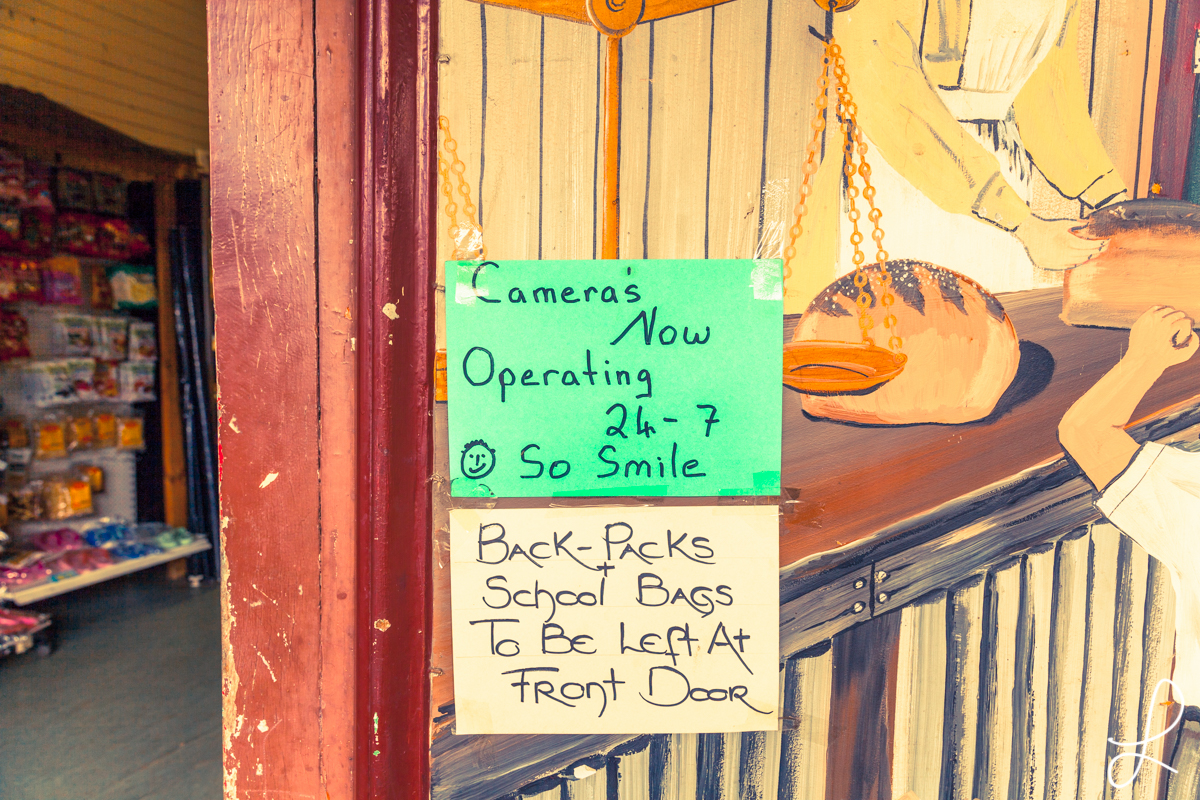 Camera's
Now
Operating
24-7
So Smile
BACK-PACKS
+
School BAGS
To BE Left At
FRont DooR